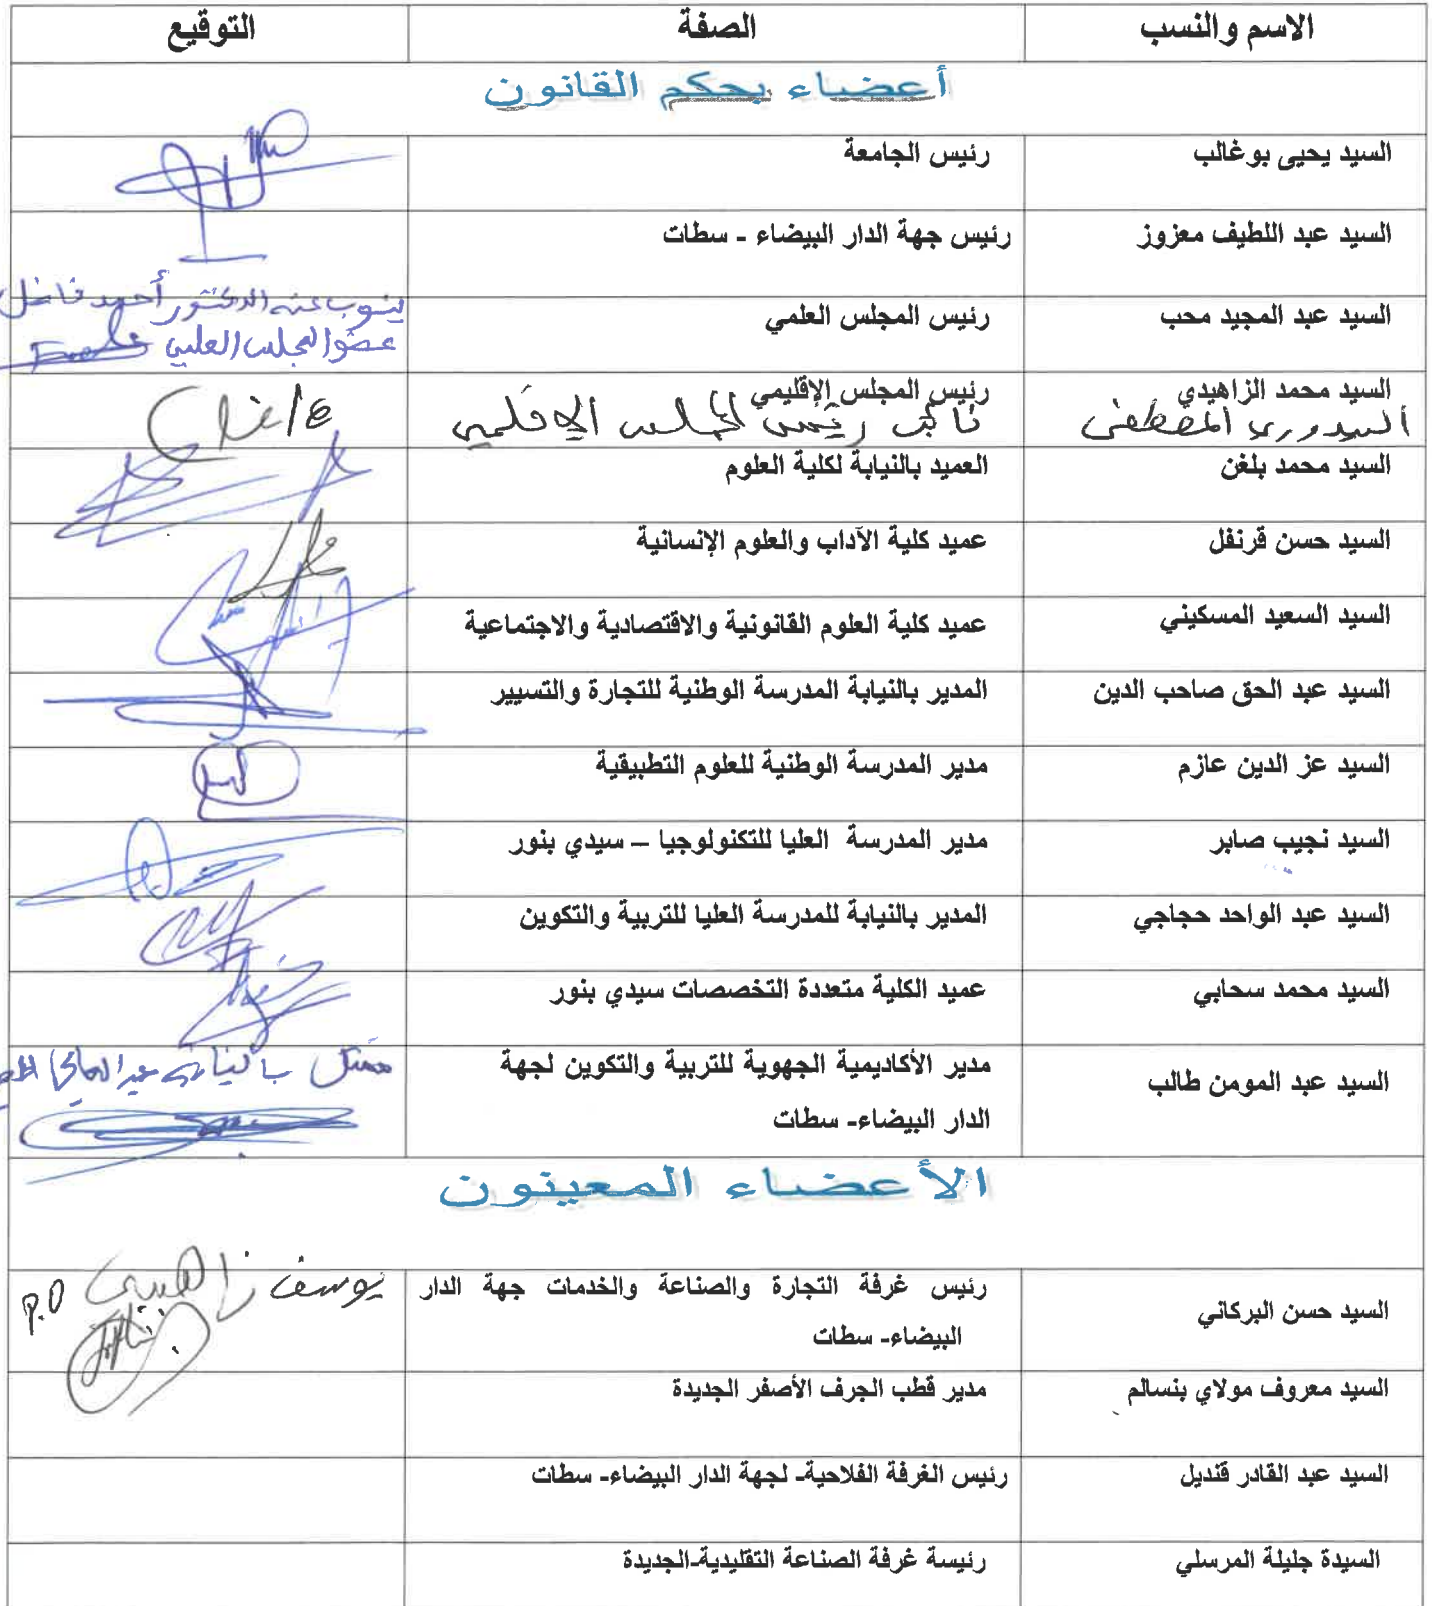 الاسم والنسب الصفة التوقيع
أعضاء بحكم القانون
السيد يحيى بوغالب رئيس الجامعة
السيد عبد اللطيف معزوز رئيس جهة الدار البيضاء - سطات
السيد عبد المجيد محب رئيس المجلس العلمي ينوب عنه الدكتور أحمد فاضل
عضو المجلس العلمي
السيد محمد الزاهيدي رئيس المجلس الإقليمي
المصطفى نائب رئيس المجلس الإقليمي
السيد محمد بلغن العميد بالنيابة لكلية العلوم
السيد حسن قرنفل عميد كلية الآداب والعلوم الإنسانية
السيد السعيد المسكيني عميد كلية العلوم القانونية والاقتصادية والاجتماعية
السيد عبد الحق صاحب الدين المدير بالنيابة المدرسة الوطنية للتجارة والتسيير
السيد عز الدين عازم مدير المدرسة الوطنية للعلوم التطبيقية
السيد نجيب صابر مدير المدرسة العليا للتكنولوجيا – سيدي بنور
السيد عبد الواحد حجاجي المدير بالنيابة للمدرسة العليا للتربية والتكوين
السيد محمد سحابي عميد الكلية متعددة التخصصات سيدي بنور
السيد عبد المومن طالب مدير الأكاديمية الجهوية للتربية والتكوين لجهة
الدار البيضاء- سطات
الأعضاء المعينون
السيد حسن البركاني رئيس غرفة التجارة والصناعة والخدمات جهة الدار يوسف P.O
البيضاء- سطات
السيد معروف مولاي بنسالم مدير قطب الجرف الأصفر الجديدة
السيد عبد القادر قنديل رئيس الغرفة الفلاحية- لجهة الدار البيضاء- سطات
السيدة جليلة المرسلي رئيسة غرفة الصناعة التقليدية-الجديدة